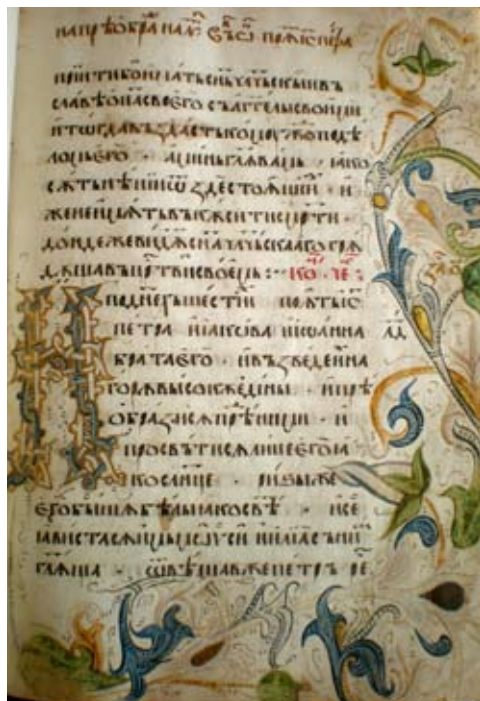 прїитибоиматьсн҃ъчл҃чьскыивъ
славѣоц҃асвоегосъаггелысвоими
итогдавъздастькомꙋждоподѣ
ломьего · аминьгл҃явамь · ꙗко
сѫтьнѣциищѡ здестоѧщиⷯ · и
женеимѫтьвъкꙋситисъмрти ·
дондежевидѧтьсн҃ачл҃чьскаагогрѧ
дѫщавъцр҃твисвоемь : · ко҃ · че҃ :
поднеⷯшестиⷯ поѧтьіс҃
петра иіаковаиіѡанна
братаего · ивъзведеѧна
горѫвысокѫедины · ипрѣ
ѡбразисѧпрⷣними · и
просвѣтисѧлицеегоꙗ
кослнце · ризыже
егобышѧбѣлыꙗкосвѣⷮ · исе
ꙗвистасѧимъмѡѵсиⷤиилиасънимⷨ
гл҃ѧща · ѿвѣщавжепетръре҃